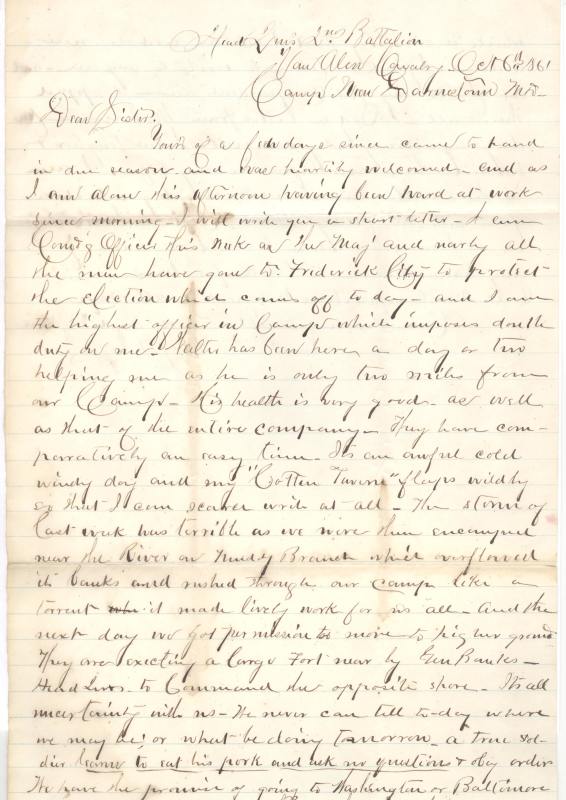 Head Qrs 2nd Battalion
Van Alen Cavalry - Oct 6th 1861
Camp Near Darnestown Md -
Dear Sister,
Yours of a few days since came to hand
in due season and was heartily welcomed - and as
I am alone this afternoon having been hard at work
since morning - I will write you a short letter - I am
Comd'g Officer this week as the Maj' and nearly all
the men have gone to Frederick City to protect
the Election which comes off to day - and I am
the highest officer in Camp which imposes double
duty on me - Walter has been here a day or two
helping me as he is only two miles from
our Camp - His health is very good - as well
as that of the entire company - They have com-
parratively an easy time - Its an awful cold
windy day and my "Cotten Tavern" flaps wildly
so that I can scarce write at all - The storm of
last week was terrible as we were then encamped
near the River on Muddy Branch which overflowed
its banks and rushed through our camp like a
torrent it made lively work for us all - And the
next day we got permission to move to higher ground
They are erecting a large Fort near by Gen Banks -
Head Qrs - to Command the opposite shore - Its all
uncertainty with us - We never can tell to-day where
we may be, or what be doing tomorrow - a true sol-
dier learns to eat his pork and ask no question & obey orders
We have the promise of going to Washington or Baltimore